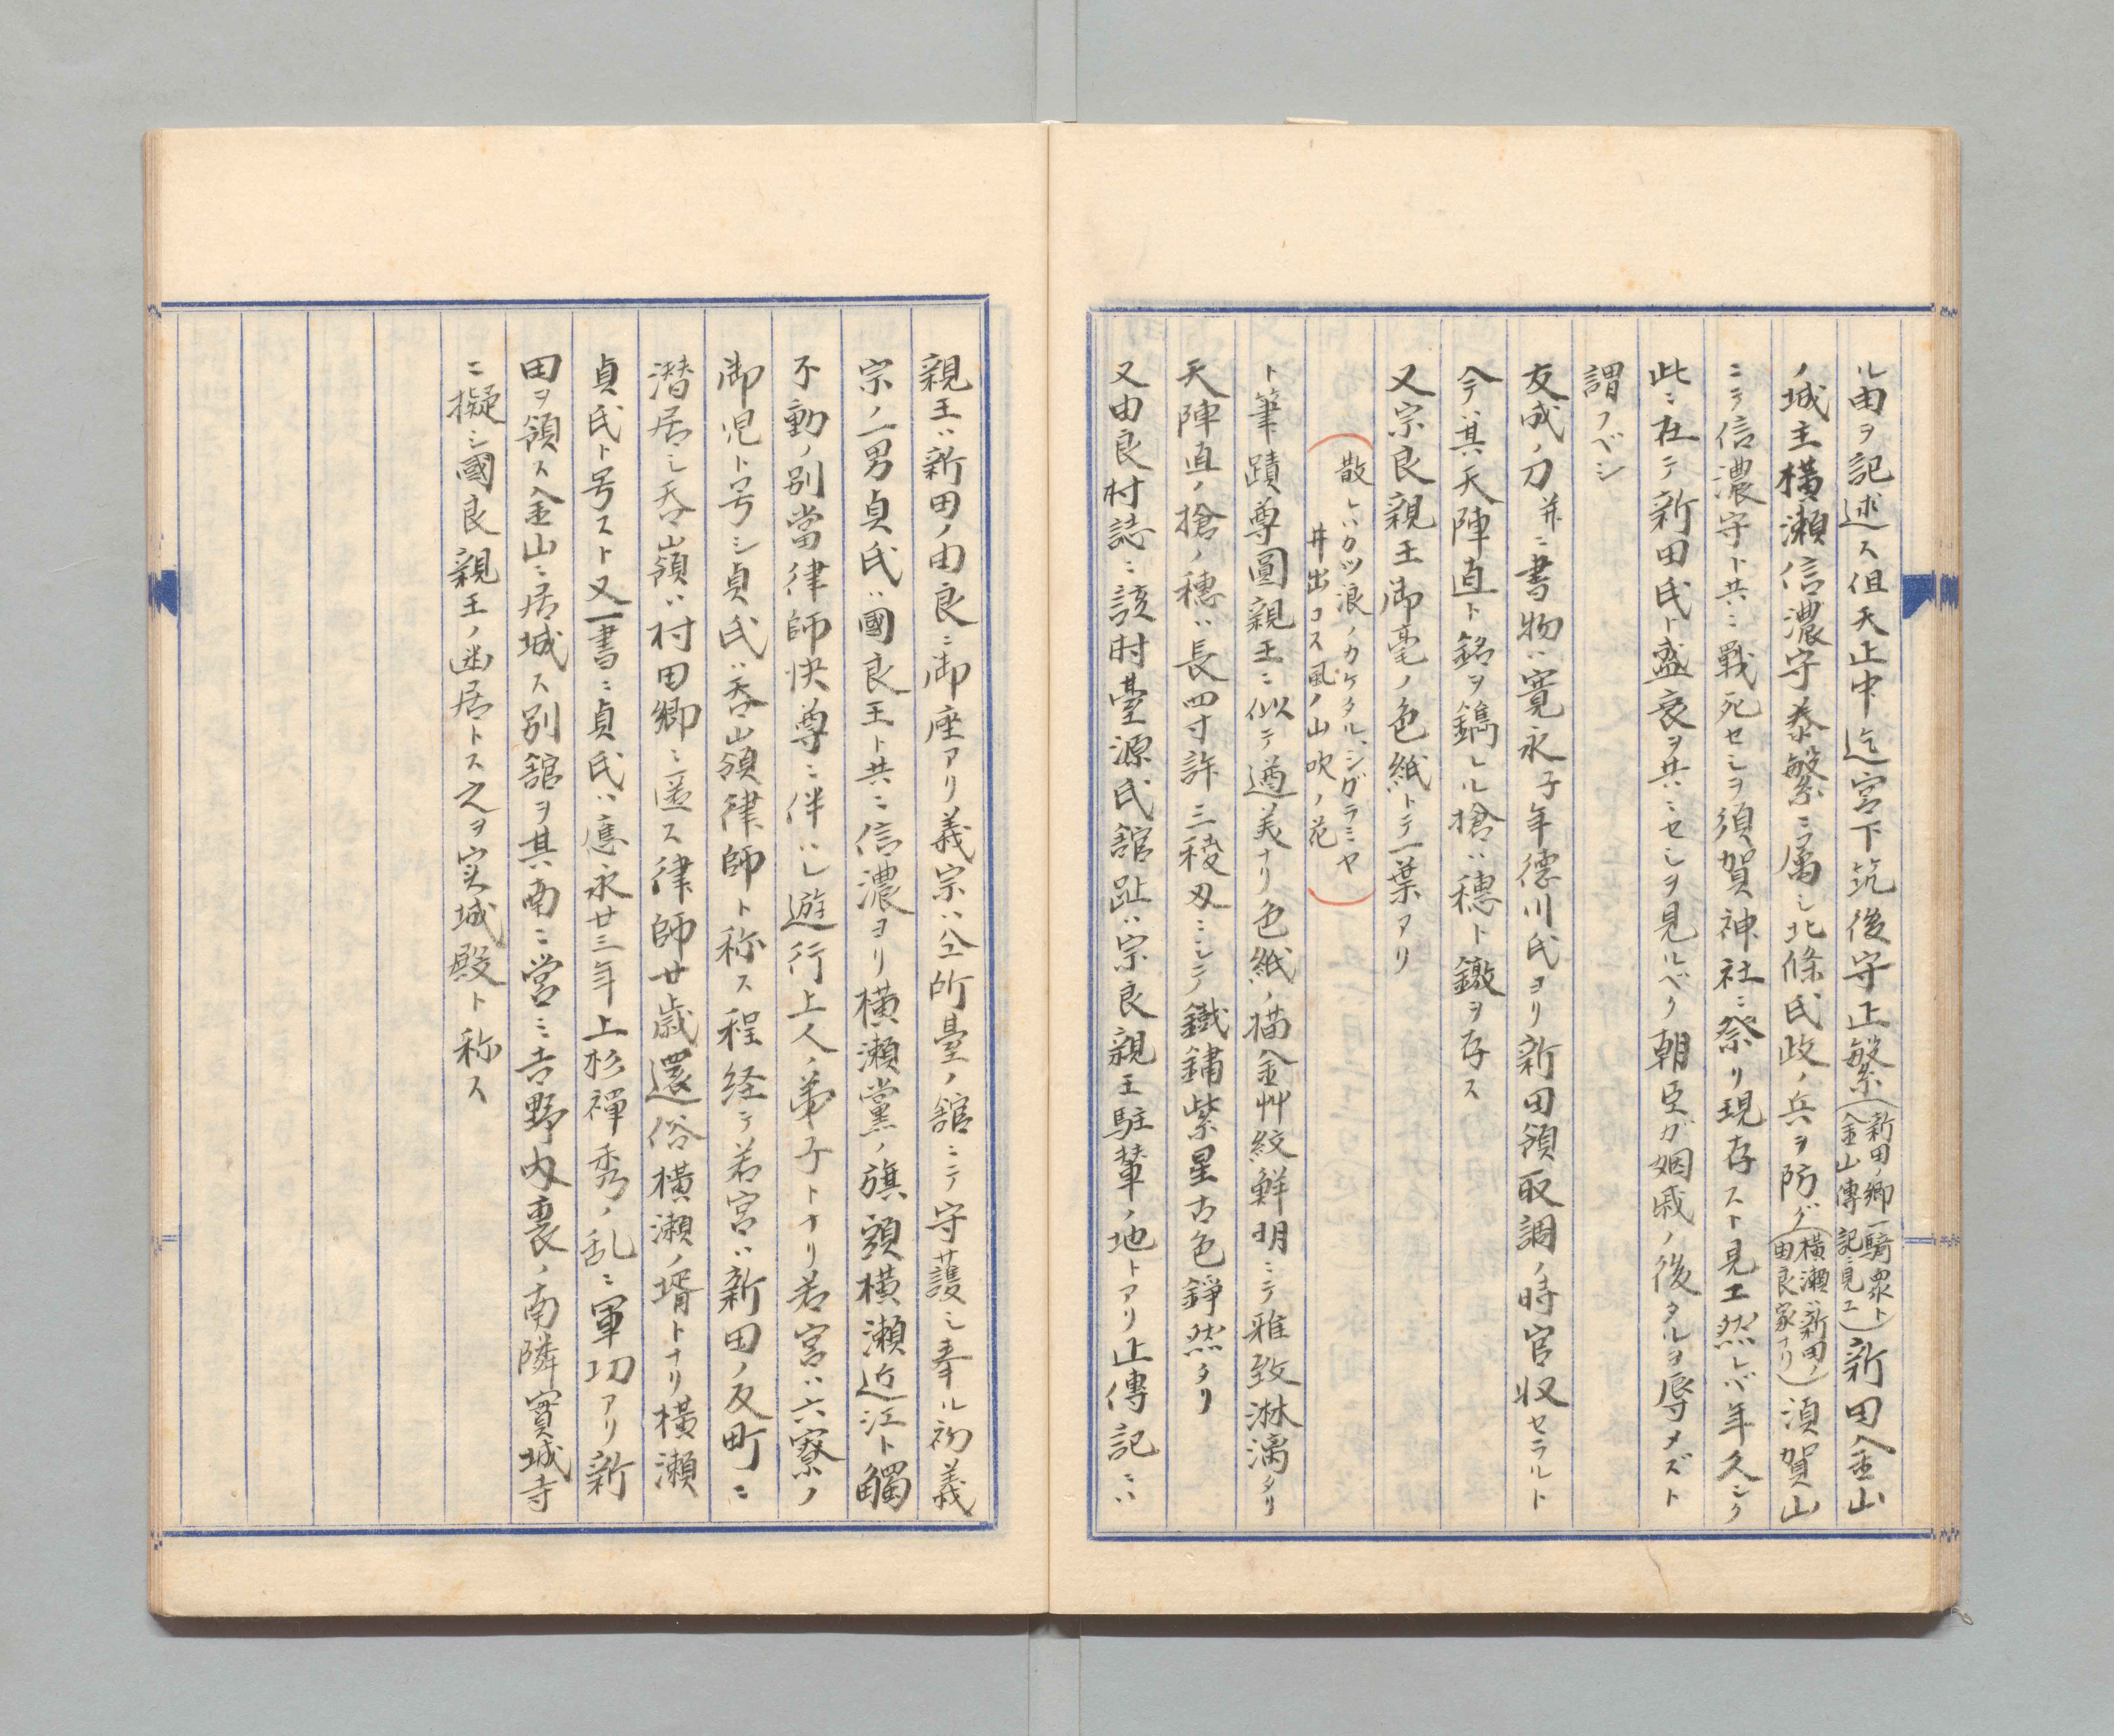 ル由ヲ記述ス但天正中迄宮下筑後守正繁(新田ノ郷一騎衆ト金山傳記ニ見エ)新田金山
ノ城主横瀬信濃守泰繁ニ属シ北條氏政ノ兵ヲ防グ(横瀬ハ新田ノ由良家ナリ)須賀山
ニテ信濃守ト共ニ戰死セシヲ須賀神社ニ祭リ現存スト見エ然レバ年久シク
此ニ在テ新田氏ト盛衰ヲ共ニセシヲ見ルベク朝臣ガ姻戚ノ後タルヲ辱メズト
謂フベシ
友成ノ刀并ニ書物ハ寛永子年徳川氏ヨリ新田領取調ノ時官収セラルト
今ハ其天陣直ト銘ヲ鐫レル槍ハ穂ト鐓ヲ存ス
又宗良親王御毫ノ色紙トテ一葉アリ
散レハカツ浪ノカケタルシガラミヤ
井出コス風ノ山吹ノ花
ト筆蹟尊圓親王ニ似テ遒美ナリ色紙ノ描金艸紋鮮明ニテ雅致淋漓タリ
天陣直ノ槍ノ穂ハ長四寸許三稜刄ニシテ鐵鏽紫星古色錚然タリ
又由良村誌ニ該村臺源氏舘趾ハ宗良親王駐輦ノ地トアリ止傳記ニハ
親王ハ新田ノ由良ニ御座アリ義宗ハ公所臺ノ舘ニテ守護シ奉ル初義
宗ノ二男貞氏ハ國良王ト共ニ信濃ヨリ横瀬黨ノ旗頭横瀬近江ト觸
不動ノ別當律師快尊ニ伴ハレ遊行上人ノ弟子トナリ若宮ハ六寮ノ
御児ト号シ貞氏ハ呑嶺律師ト称ス程経テ若宮ハ新田ノ反町ニ
潜居シ呑嶺ハ村田郷ニ匿ス律師廿歳還俗横瀬ノ壻トナリ横瀬
貞氏ト号スト又一書ニ貞氏ハ應永廿三年上杉禪秀ノ乱ニ軍功アリ新
田ヲ領ス金山ニ居城ス別舘ヲ其南ニ営ミ吉野内裏ノ南隣實城寺
ニ擬シ國良親王ノ幽居トス之ヲ实城殿ト称ス